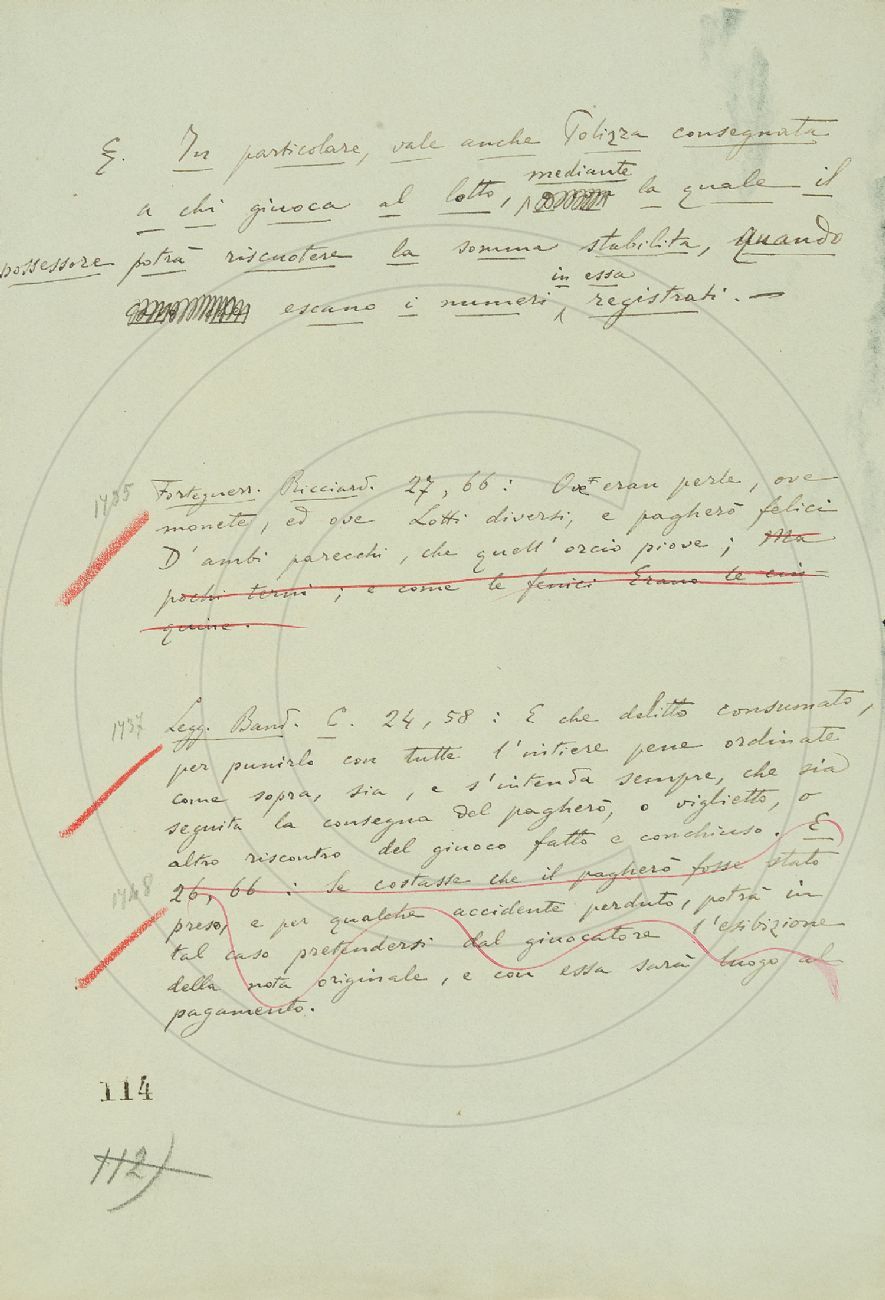 §. In particolare, vale anche Polizza consegnata
a chi giuoca al lotto, mediante la quale il
possessore potrà riscuotere la somma stabilita, quando
escano i numeri in essa registrati. —
1735 Forteguerr. Ricciard. 27, 66: Ove eran perle, ove
monete, ed ove Lotti diversi, e pagherò felici
D'ambi parecchi, che quell'orcio piove; Ma
pochi terni; e come le fenici Erano le cin
quine.
1737 Legg. Band. C. 24, 58: E che delitto consumato,
per punirlo con tutte l'intiere pene ordinate
come sopra, sia, e s'intenda sempre, che sia
seguita la consegna del pagherò, o viglietto, o
altro riscontro del giuoco fatto e conchiuso. E
1748 26, 66: Se costasse che il pagherò fosse stato
preso, e per qualche accidente perduto, potrà in
tal caso pretendersi dal giuocatore l'esibizione
della nota originale, e con essa sarà luogo al
pagamento.
114
112)